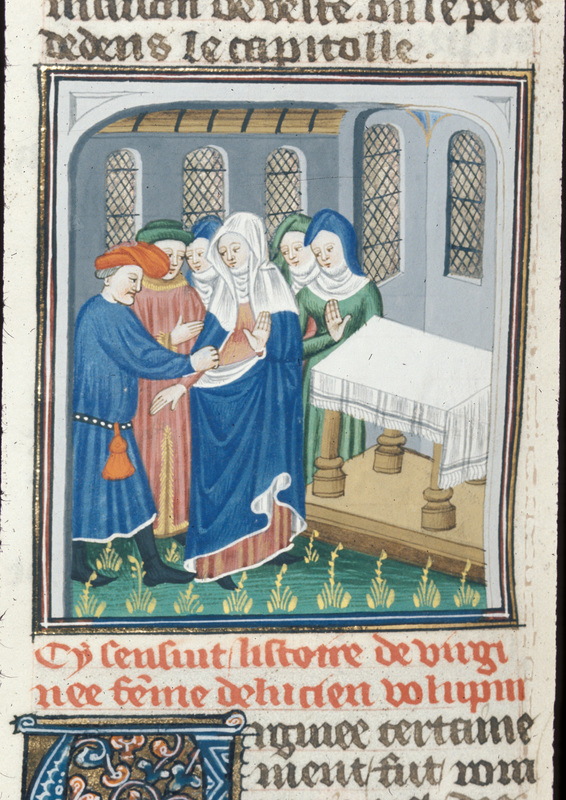 dedens le capitolle.
Cy sensuit listoire de virgi
nee feme de lucien volupin
irginee certaine
ment fut rom